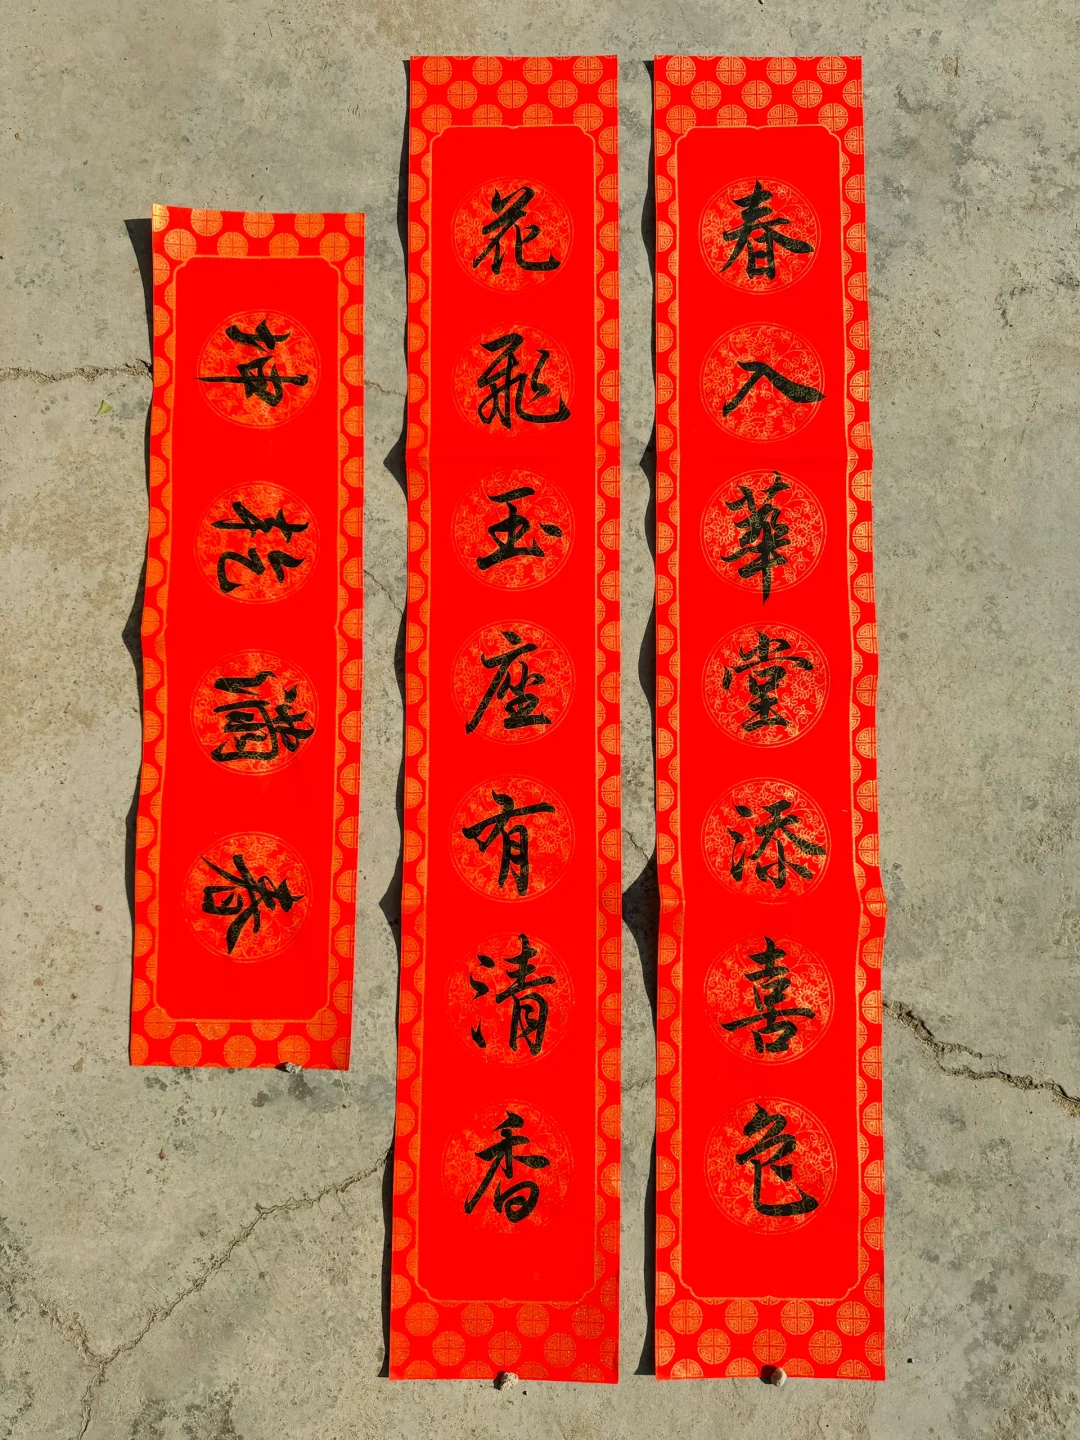 春入華堂添喜色
花飛玉座有清香
春滿乾坤